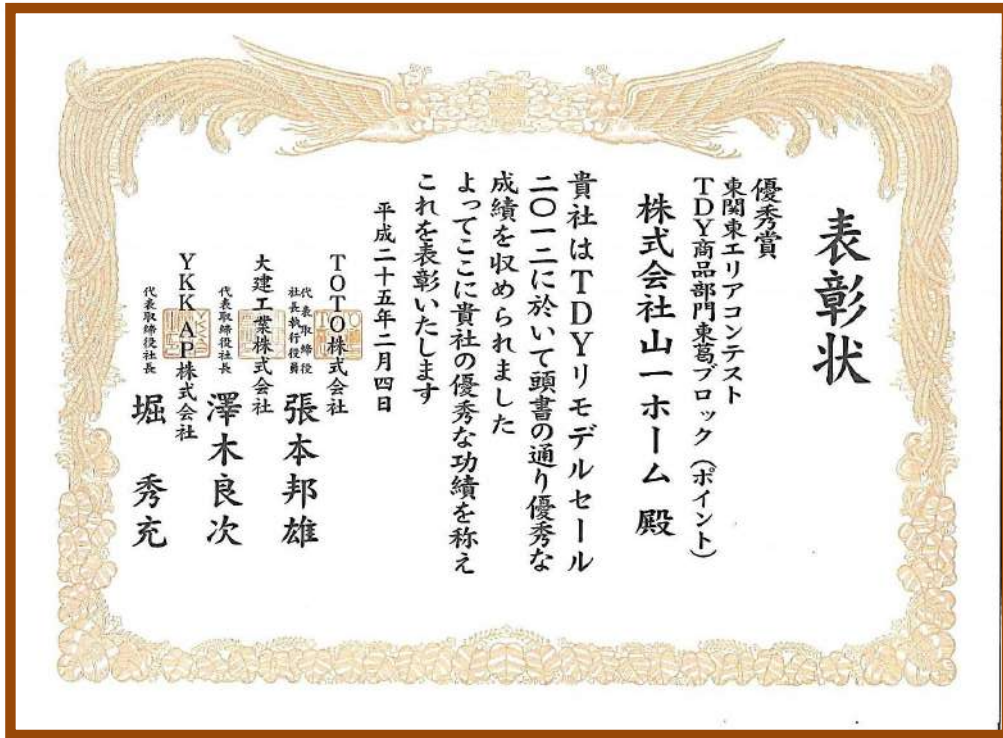 表彰状
優秀賞
東関東エリアコンテスト
TDY商品部門東葛ブロック(ポイント)
株式会社山一ホーム 殿
貴社はTDYリモデルセール
二〇一二に於いて頭書の通り優秀な
成績を収められました
よってここに貴社の優秀な功績を称え
これを表彰いたします
平成二十五年二月四日
TOTO株式会社
代表取締役
社長執行役員 張本邦雄
大建工業株式会社
代表取締役社長 澤木良次
YKK AP株式会社
代表取締役社長 堀 秀充